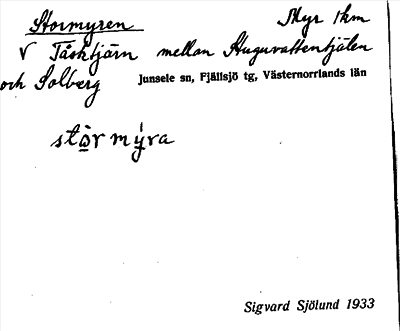 Stormyren Myr 1km
V Tåsktjärn mellan Stuguvattentjälen
och Solberg Junsele sn, Fjällsjö tg, Västernorrlands län
stòrmýra
Sigvard Sjölund 1933